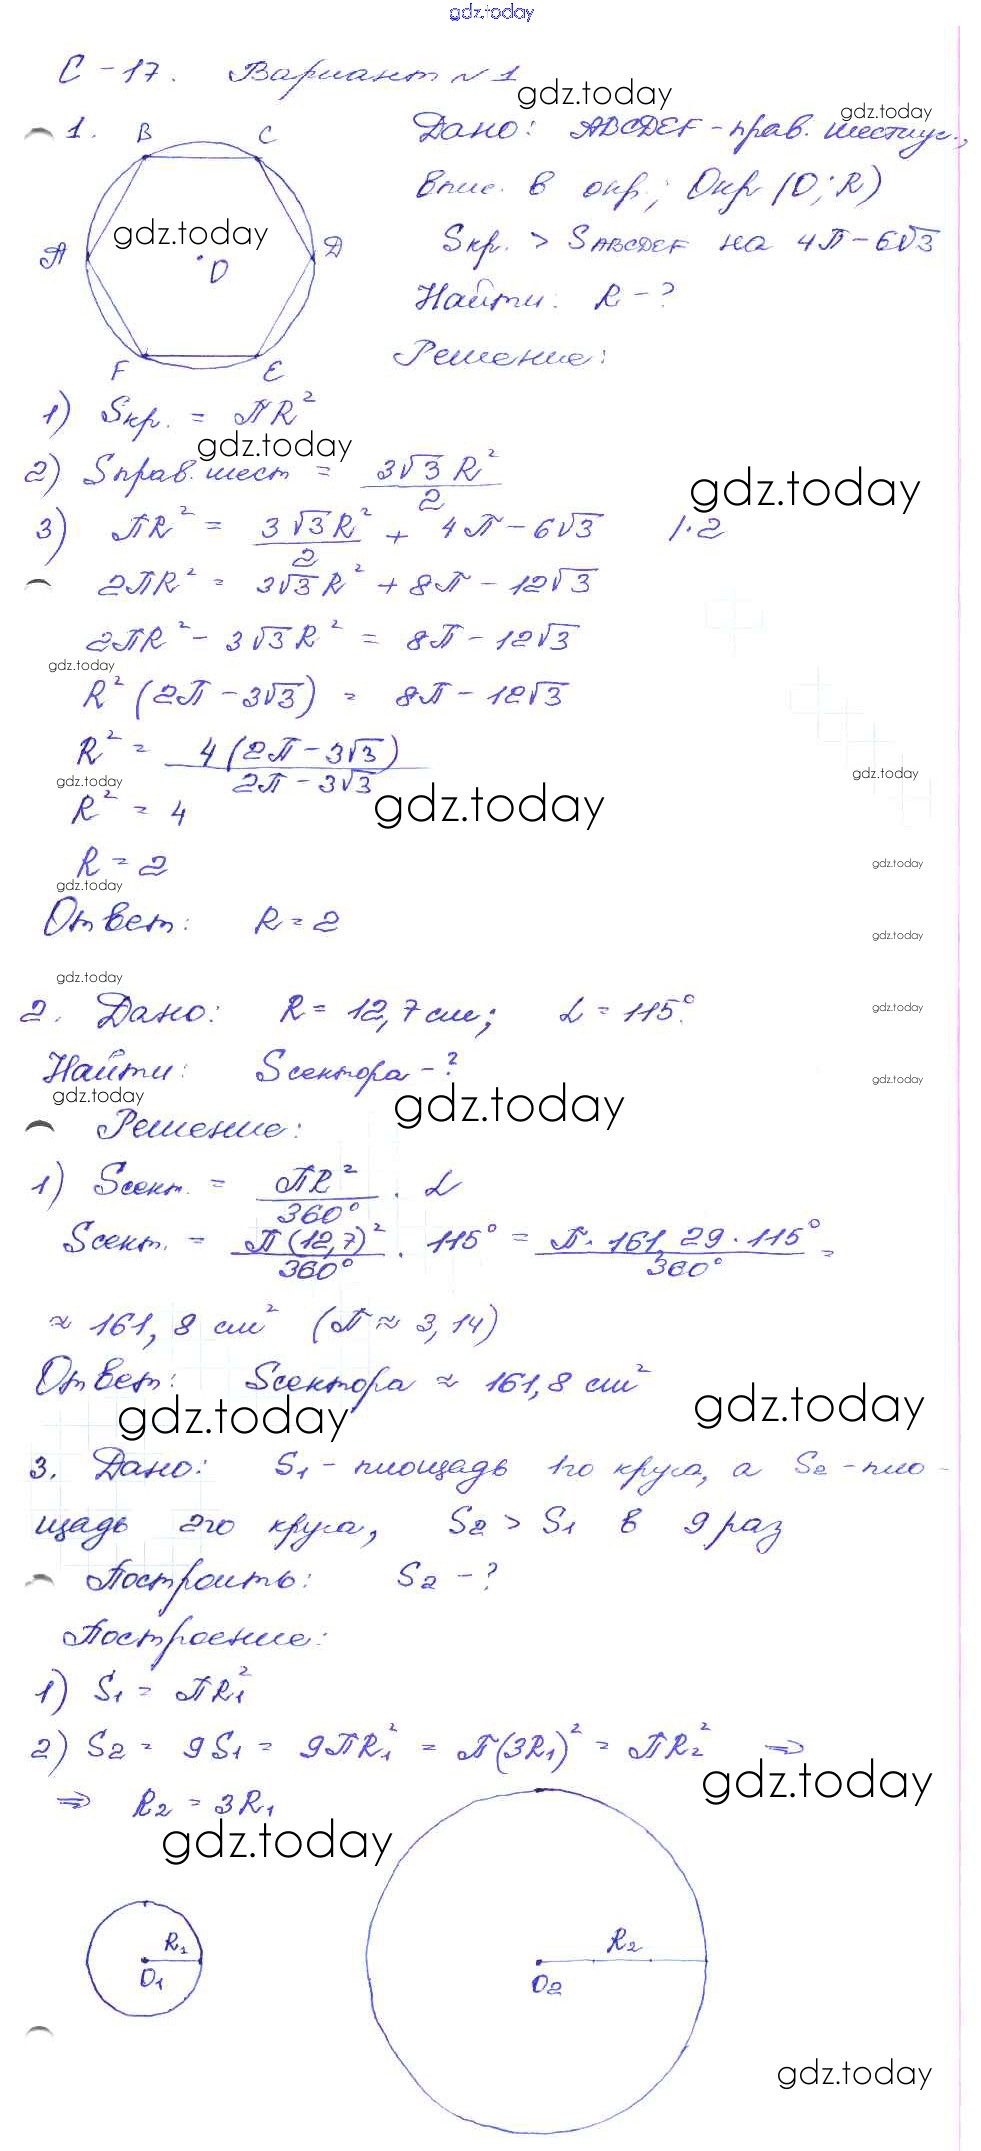 gdz.today
С-17. Вариант №1
gdz.today
gdz.today
1. B C
Дано: ABCDEF - прав. шестиуг.,
впис. в окр; Окр (O; R)
gdz.today
A D
O
Sкр. > SABCDEF на 4π-6√3
Найти: R-?
F E
Решение:
1) Sкр. = πR²
gdz.today
2) Sправ.шест = 3√3R²/2
gdz.today
3) πR² = 3√3R²/2 + 4π-6√3 |·2
2πR² = 3√3R² + 8π - 12√3
2πR² - 3√3R² = 8π - 12√3
gdz.today
R²(2π-3√3) = 8π-12√3
R² = 4(2π-3√3)/2π-3√3
gdz.today
gdz.today
gdz.today
R² = 4
R = 2
gdz.today
gdz.today
Ответ: R=2
gdz.today
gdz.today
2. Дано: R = 12,7 см; L = 115°.
gdz.today
Найти: Sсектора-?
gdz.today
gdz.today
gdz.today
Решение:
1) Sсект. = πR²/360° · L
Sсект. = π(12,7)²/360° · 115° = π·161,29·115°/360° =
≈ 161,8 см² (π ≈ 3,14)
Ответ: Sсектора ≈ 161,8 см²
gdz.today
gdz.today
3. Дано: S1 - площадь 1го круга, а S2 - пло-
щадь 2го круга, S2 > S1 в 9 раз
Построить: S2-?
Построение:
1) S1 = πR1²
2) S2 = 9S1 = 9πR1² = π(3R1)² = πR2² ⇒
gdz.today
⇒ R2 = 3R1
gdz.today
R1
O1
R2
O2
gdz.today